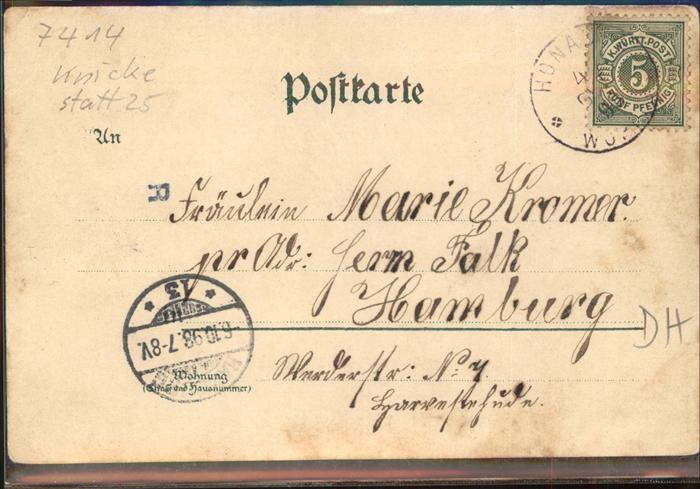 7414
Knicke
statt 25
Postkarte
K.WÜRTT.POST
5
FÜNF PFENNIG
An
R
Fräulein Marie Kromer.
pr Adr: Herrn Falk
Hamburg
DH
13
6.10.98.7-8V.
Wohnung
(Straße und Hausnummer)
Werderstr: No 7
Harvestehude.